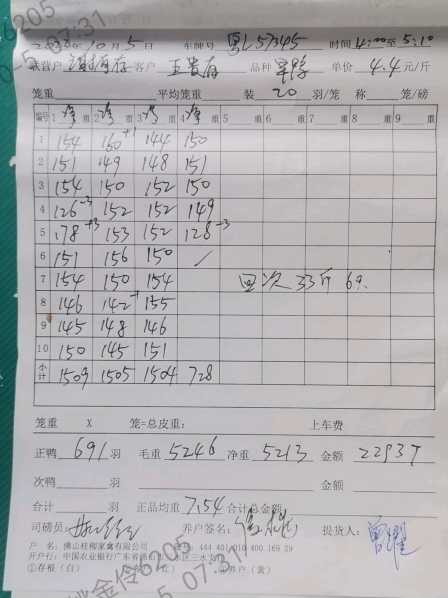 10月5日 车牌号 粤L57345 时间 4:00至5:10
客户 王贵存 品种 单价 4.4元/斤
笼重 平均笼重 装 20 羽/笼 称 笼/磅
编号 1 净重 2 净重 3 净重 4 净重 5 重 6 重 7 重 8 重 9 重
1 154 160 +1 144 150
2 151 149 148 151
3 154 150 152 150
4 126 -3 152 152 149
5 178 +3 153 152 128 -3
6 151 156 150 /
7 154 150 154 回次 33斤 6只
8 146 142 155
9 145 148 146
10 150 145 151
小计 1509 1505 1504 728
笼重 X 笼=总皮重: 上车费
正鸭 691 羽 毛重 5246 净重 5213 金额 22937
次鸭 羽 金额
合计 羽 正品均重 7.54 合计总金额
司磅员: 养户签名: 提货人:
户 名: 佛山桂柳家禽有限公司
开户行: 中国农业银行广东省
①存根(白) (黄)